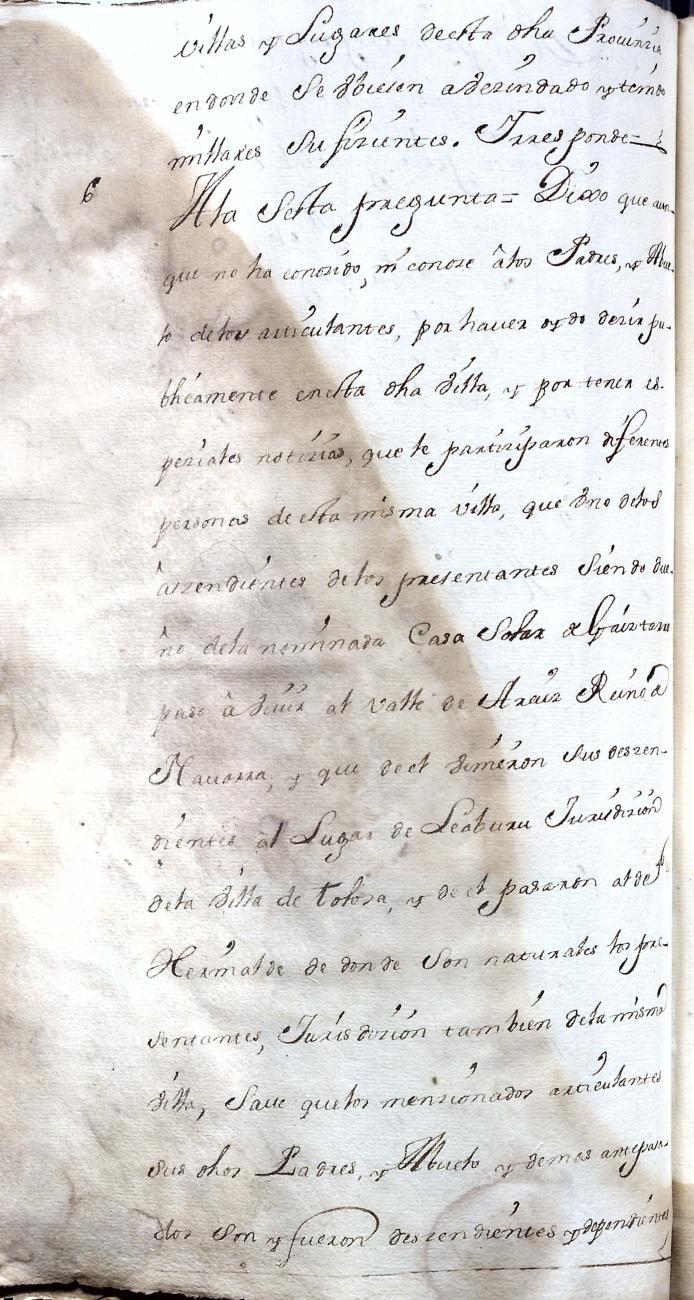 villas y Lugares de esta dha Provinzia
en donde se Vbiesen abezindado y tenido
millares sufizientes. Y responde=
6 A la Sesta pregunta= Dixo que aun-
que no ha conozido, ni conoze â los Padres, y Abue-
lo de los articulantes, por haver oydo dezir pu-
blicamente en esta dha Villa, y por tener es-
peziales notizias, que le partiziparon diferentes
personas de esta misma villa, que Vno de los
âszendientes de los presentantes siendo due-
ño de la nominada Casa Solar de
paso â Vivir al valle de Araiz Reino de
Navarra, y que de el Vinieron sus deszen-
dientes al Lugar de Leaburu Jurisdizion
de la Villa de Tolosa, y de el pasaron al de
Hernialde de donde son naturales los pre-
sentantes, Jurisdizion tambien de la misma
Villa, Save que los menzionados articulantes
sus dhos Padres, y Abuelo y demas antepasa-
dos son y fueron deszendientes y dependientes